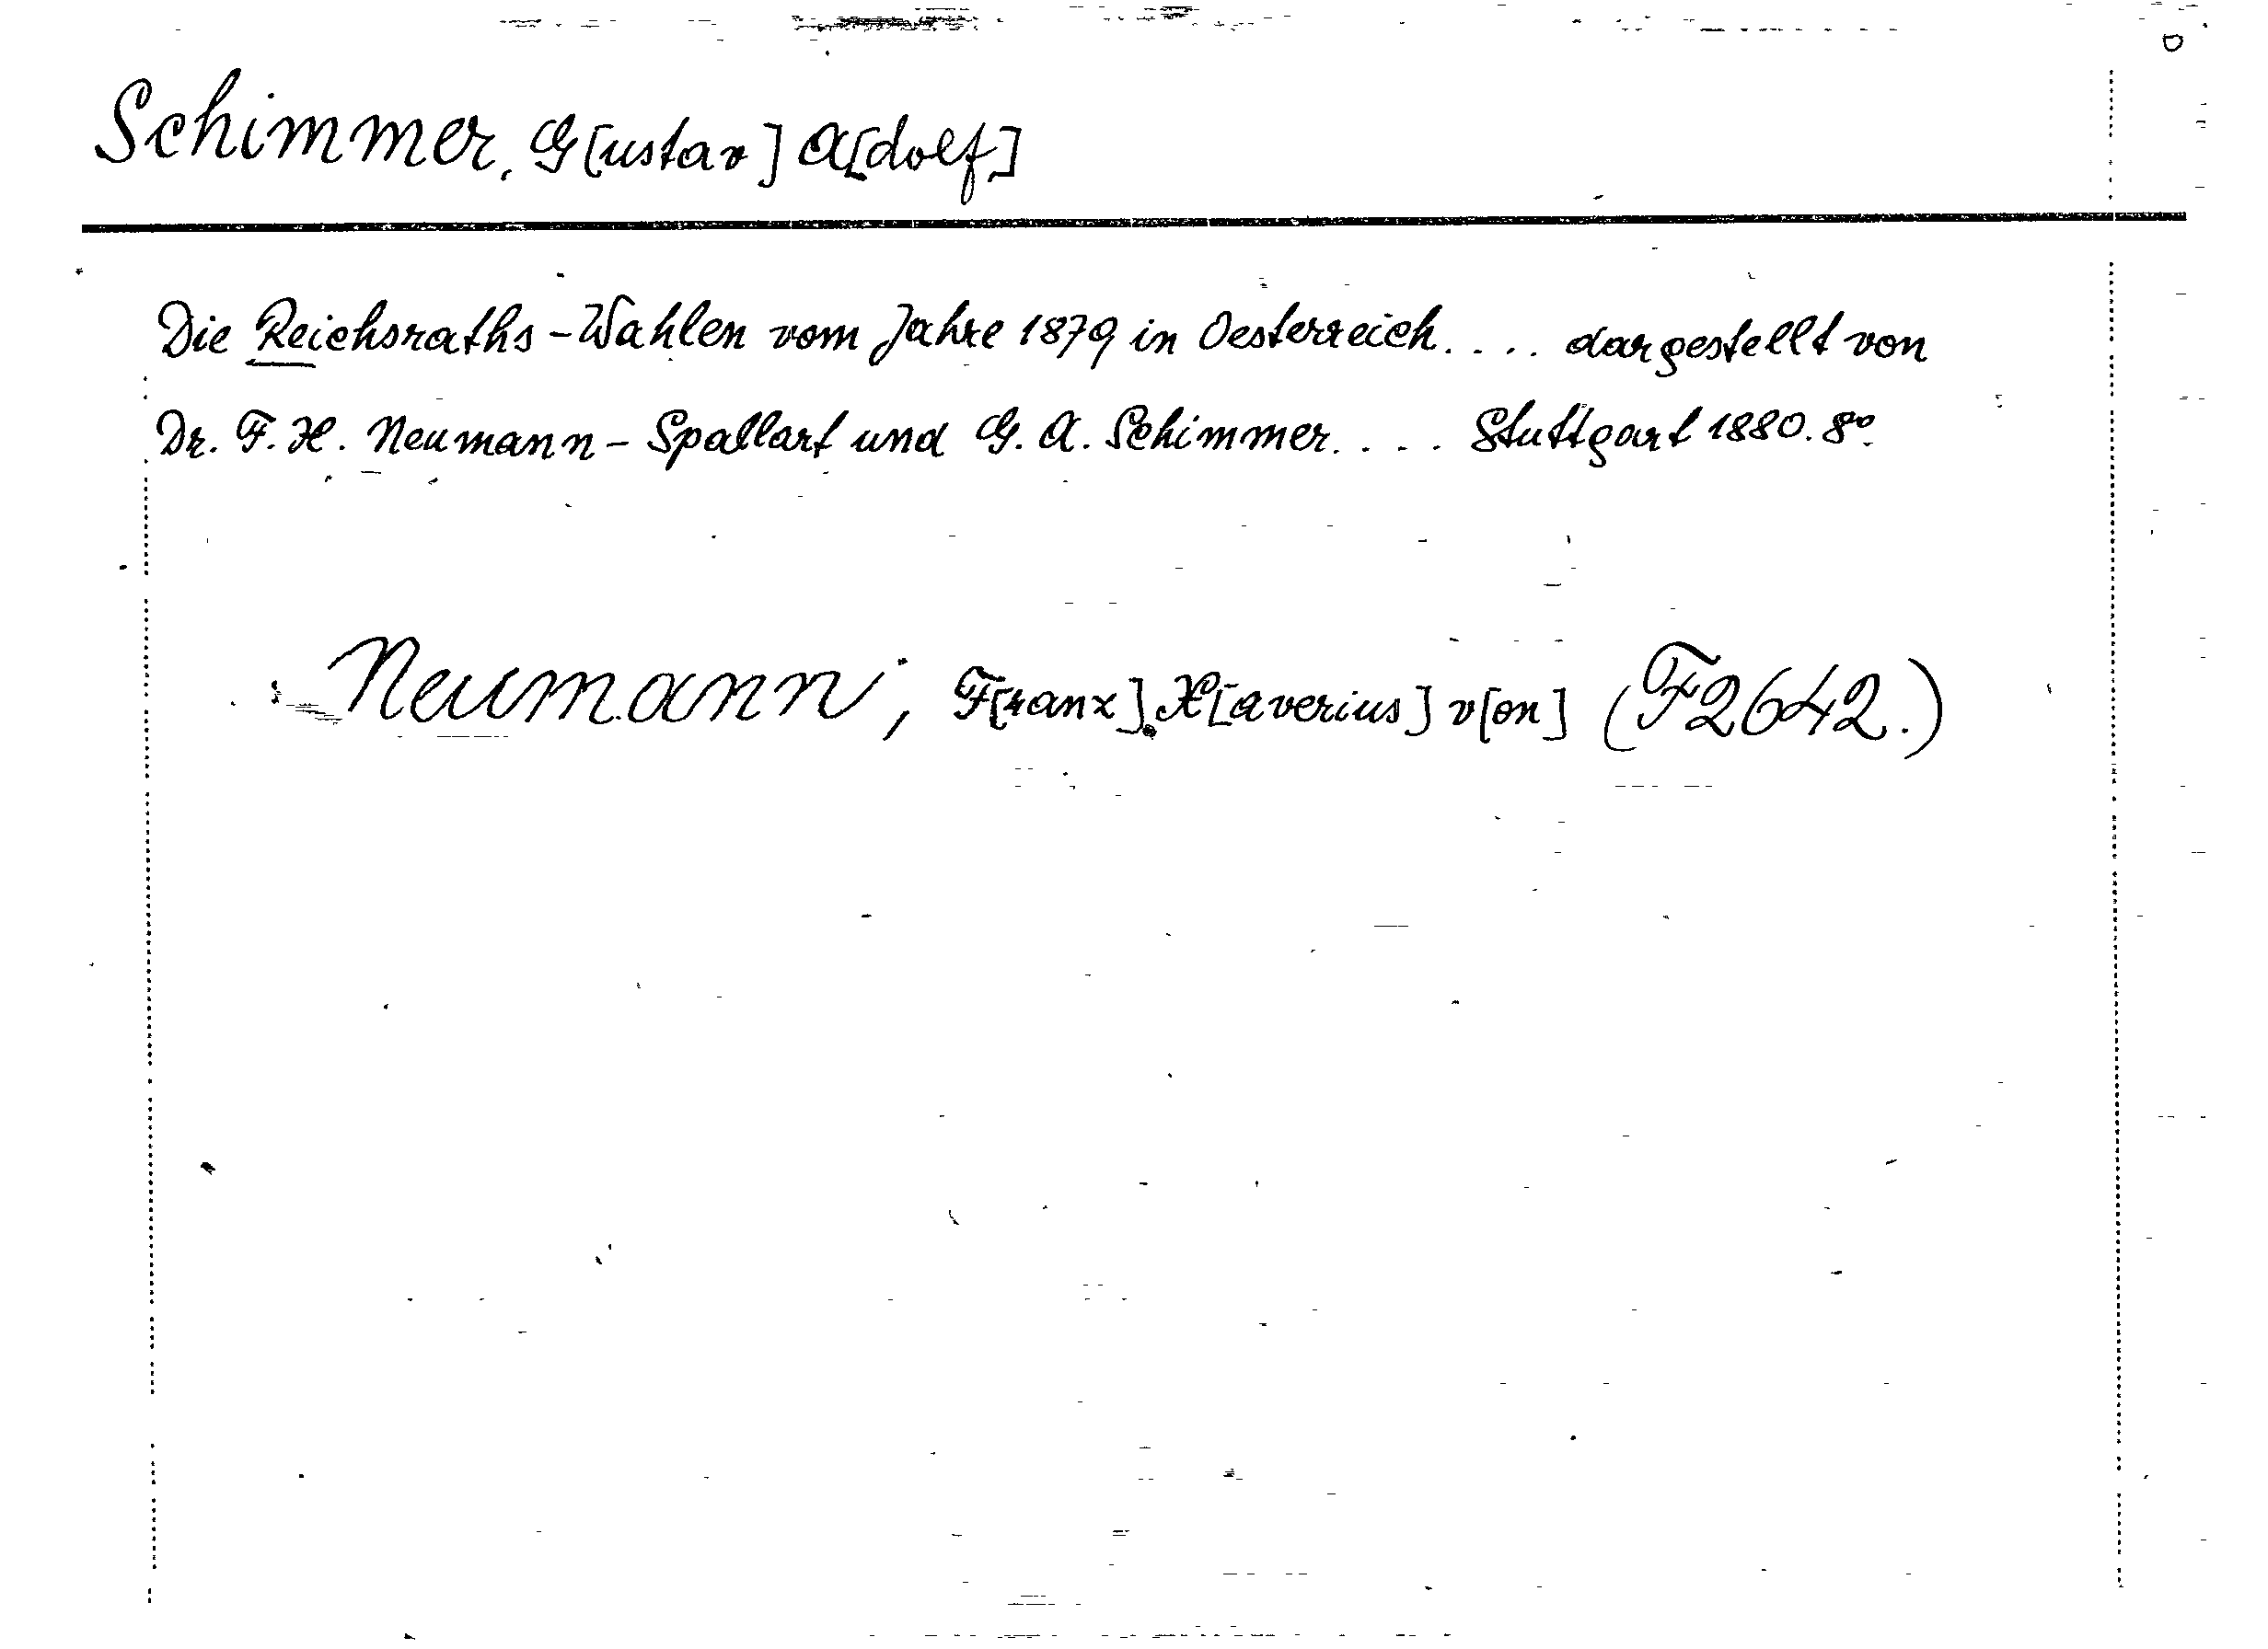 Schimmer, G[ustav] A[dolf]
Die Reichsraths-Wahlen vom Jahre 1879 in Oesterreich.... dargestellt von
Dr. F. X. Neumann-Spallart und G. A. Schimmer.... Stuttgart 1880. 8°.
Neumann, F[ranz] X[averius] v[on] (F2642.)